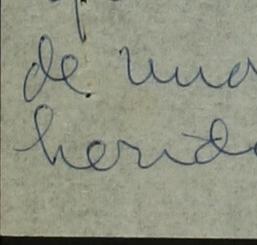 de una
herida